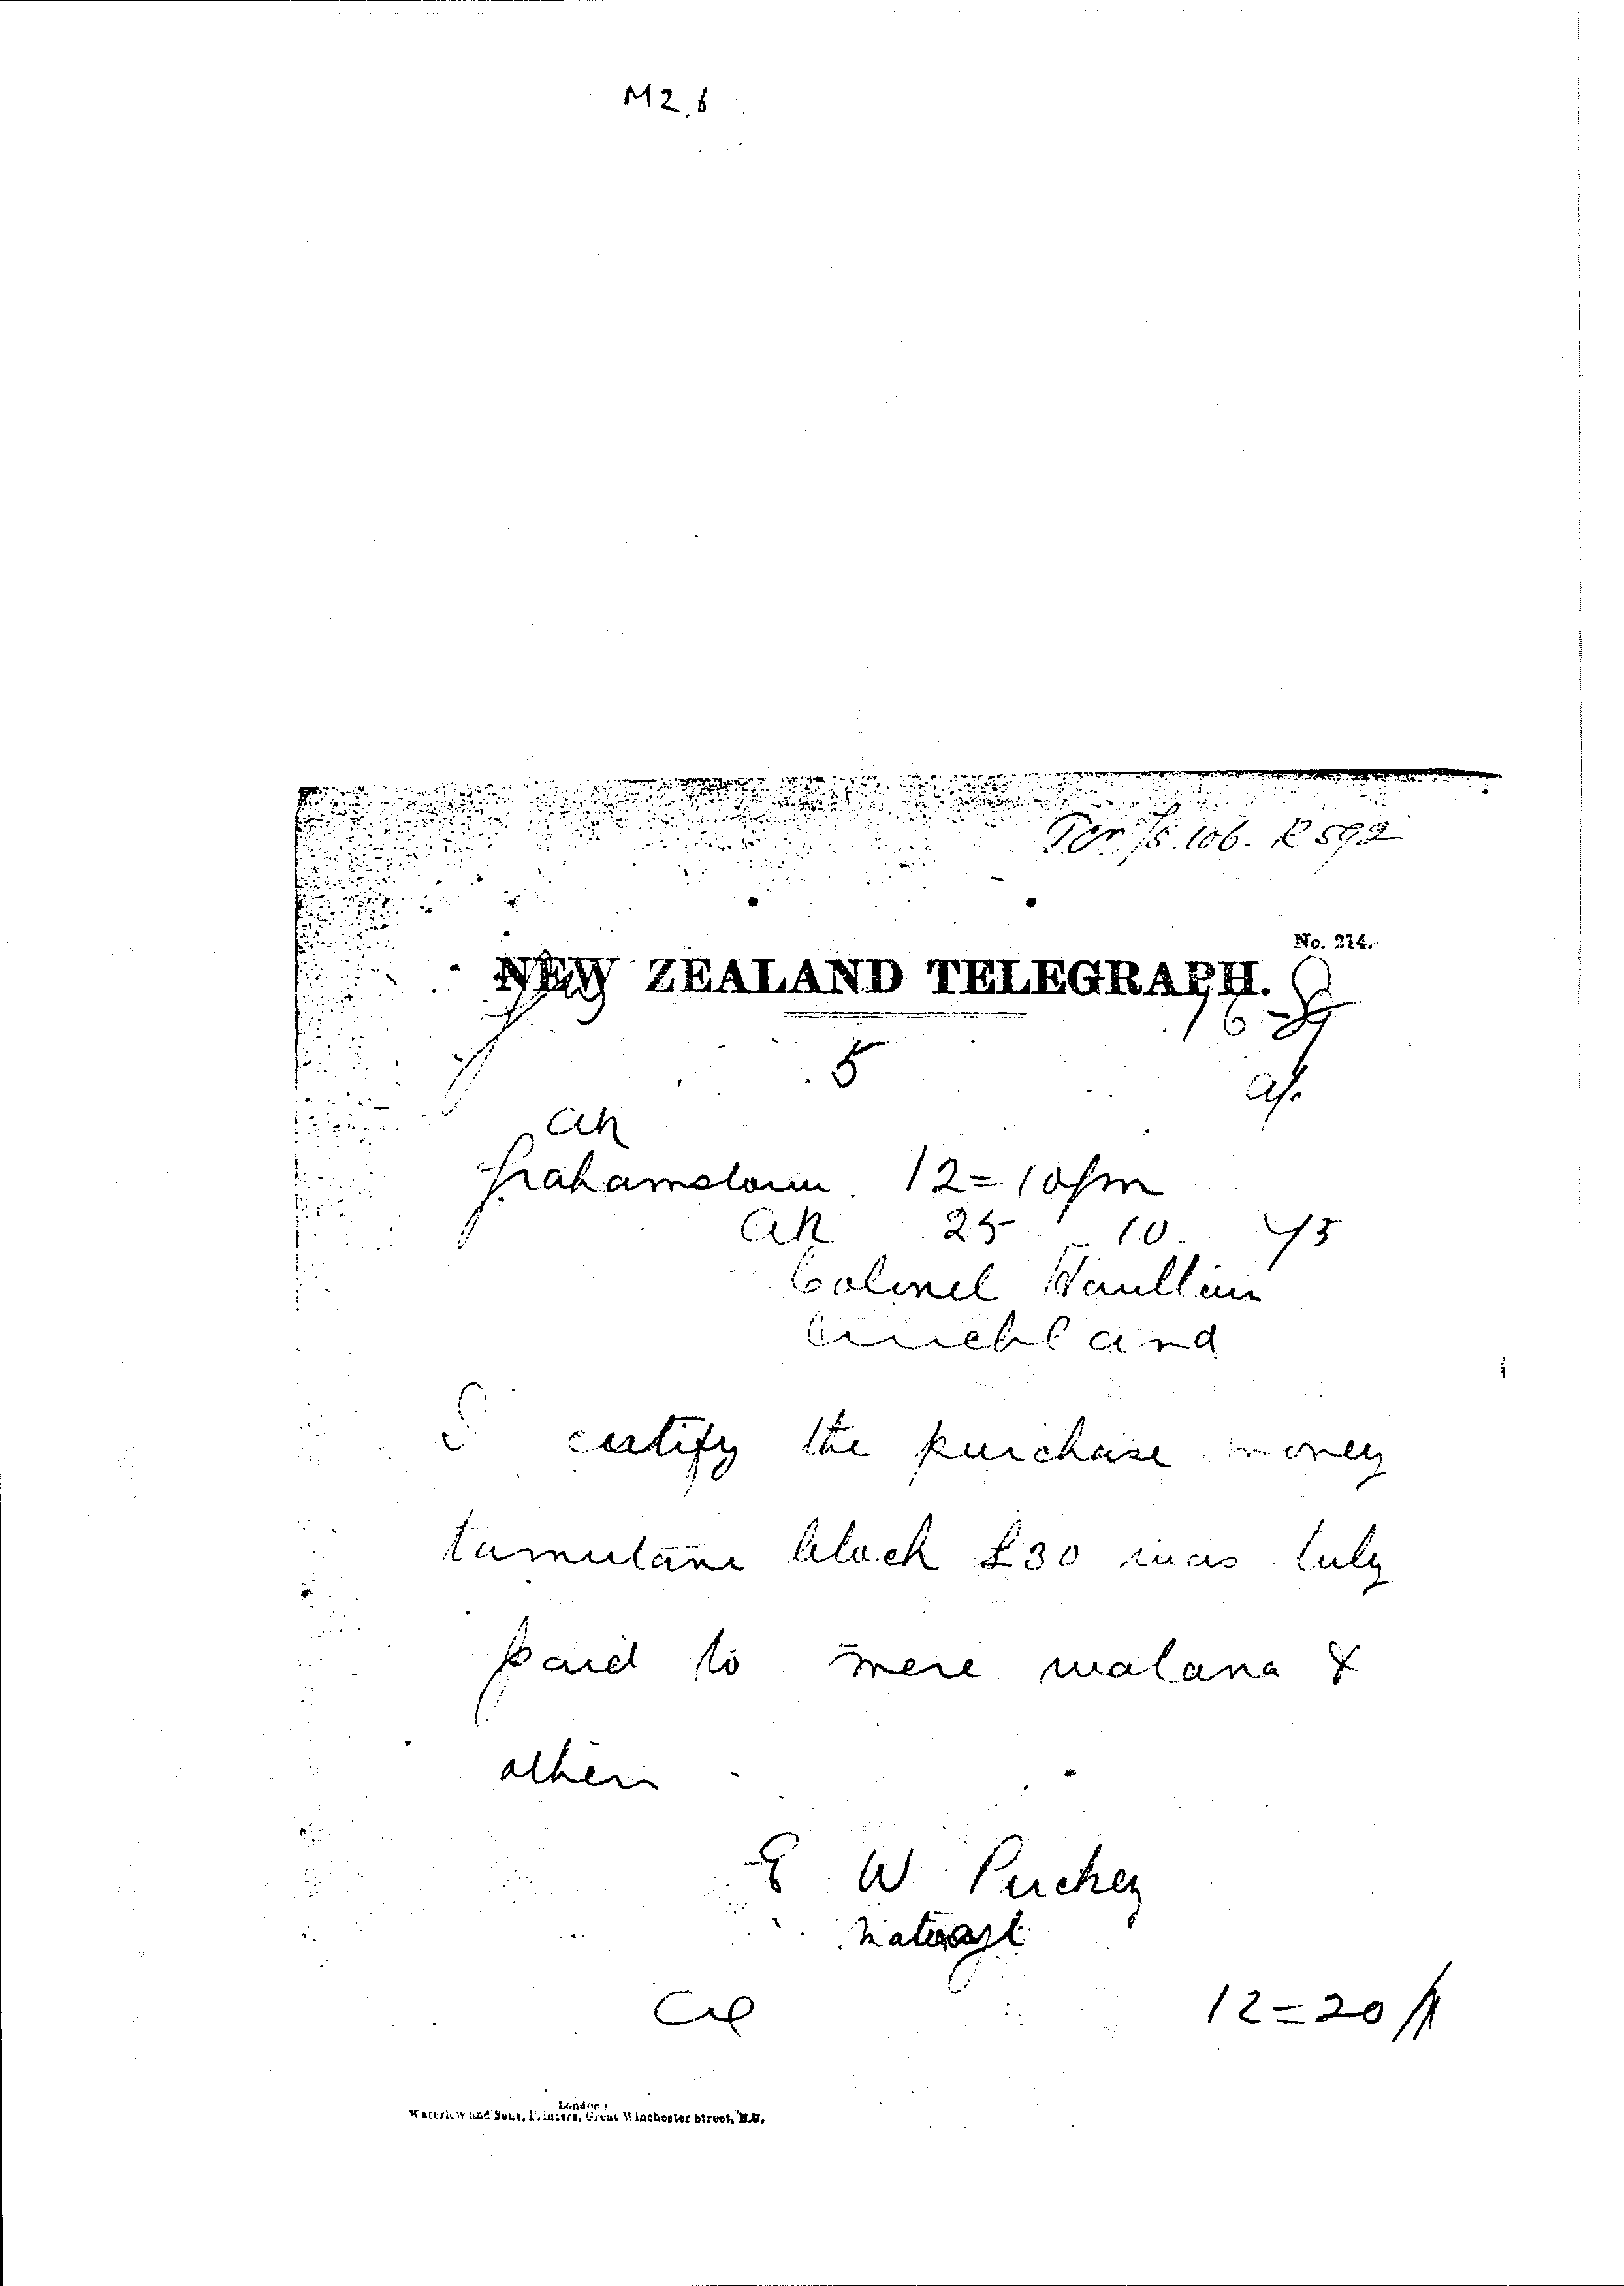 M2.8
Tcr/s.106. R 592
No. 214.
NEW ZEALAND TELEGRAPH.
16
5
ak
Grahamstown 12=10pm
ak 25 10 73
Colonel Haultain
Auckland
I certify the purchase money
tamutane block £30 was
paid to mere watana &
others
E W Puckey
12=20
London:
Waterlow and Sons, Printers, Great Winchester Street, E.C.